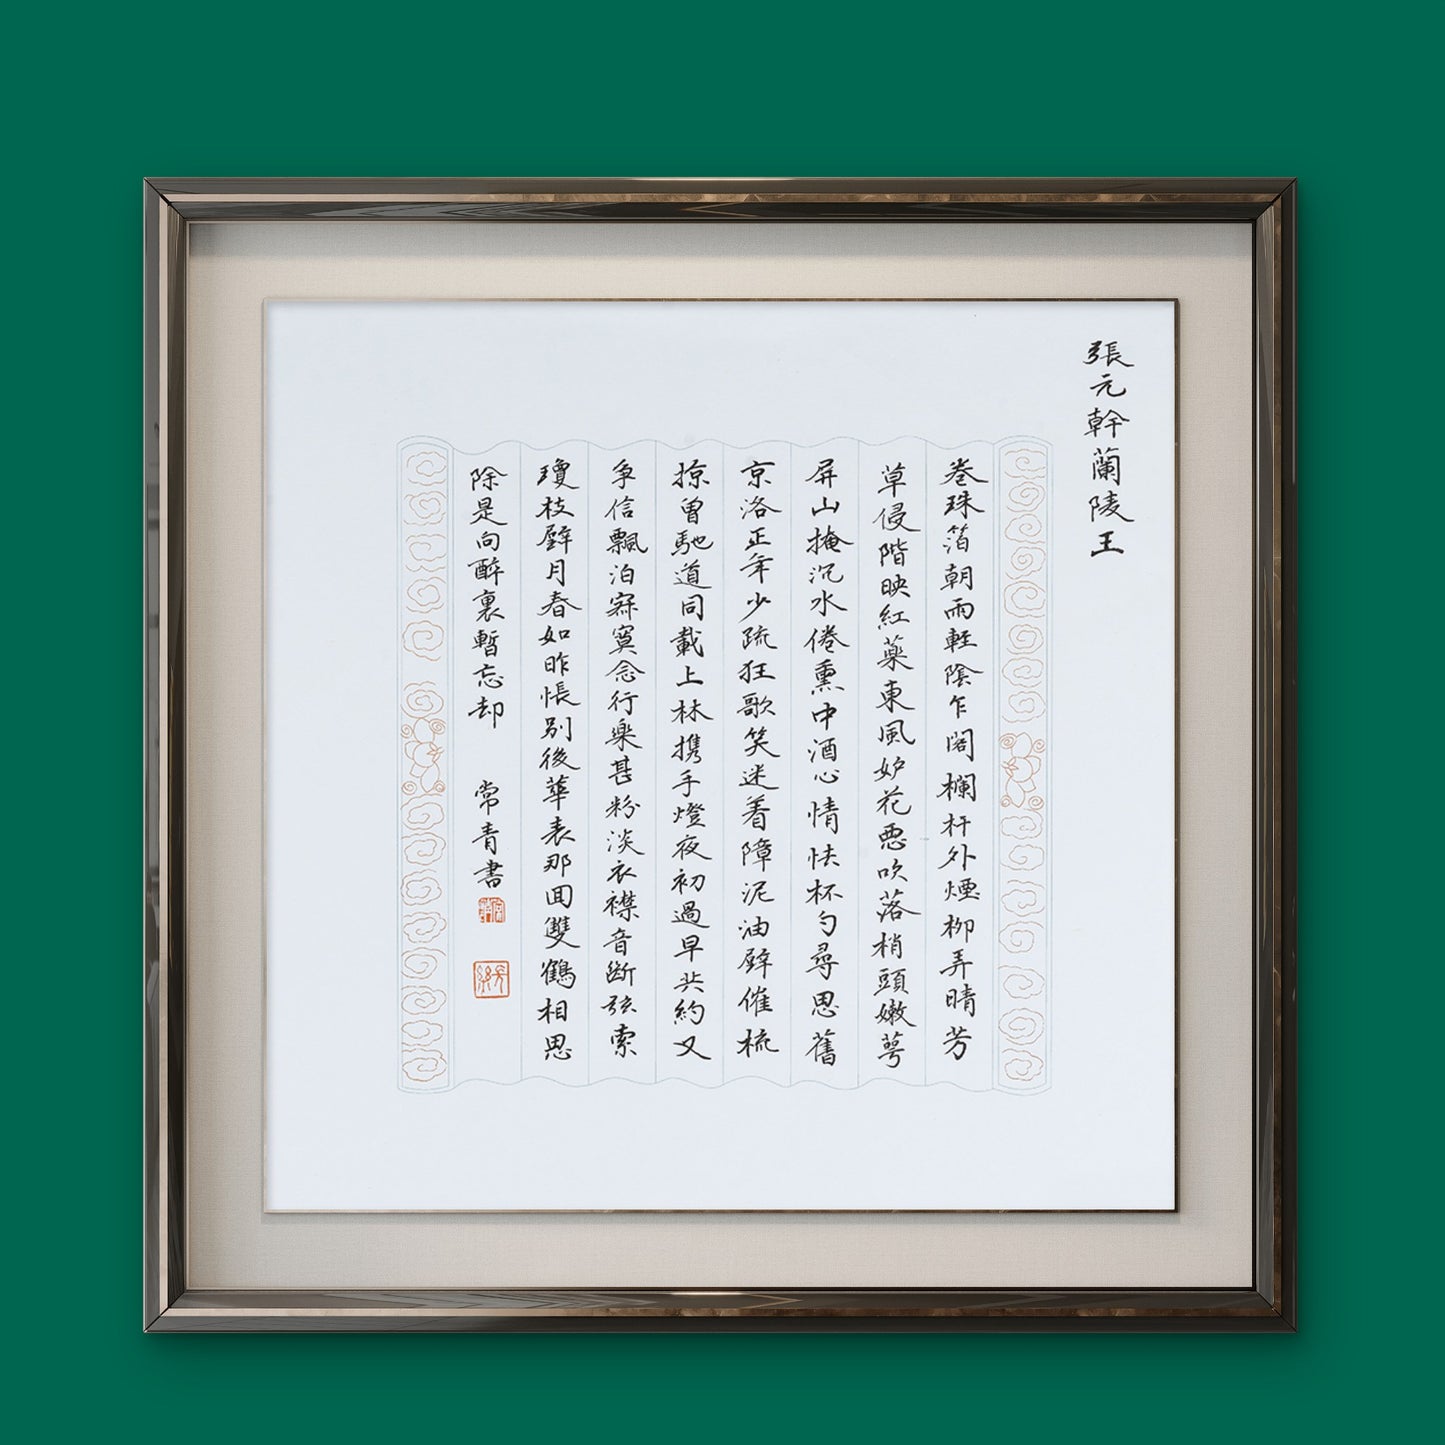 張元幹蘭陵王
卷珠箔朝雨輕陰乍閣欄杆外煙柳弄晴芳
草侵階映紅藥東風妒花惡吹落梢頭嫩萼
屏山掩沉水倦熏中酒心情怯杯勺尋思舊
京洛正年少疏狂歌笑迷着障泥油壁催梳
掠曾馳道同載上林携手燈夜初過早共約又
爭信飄泊寂寞念行樂甚粉淡衣襟音斷弦索
瓊枝壁月春如昨悵別後華表那回雙鶴相思
除是向醉裏暫忘却
常青書